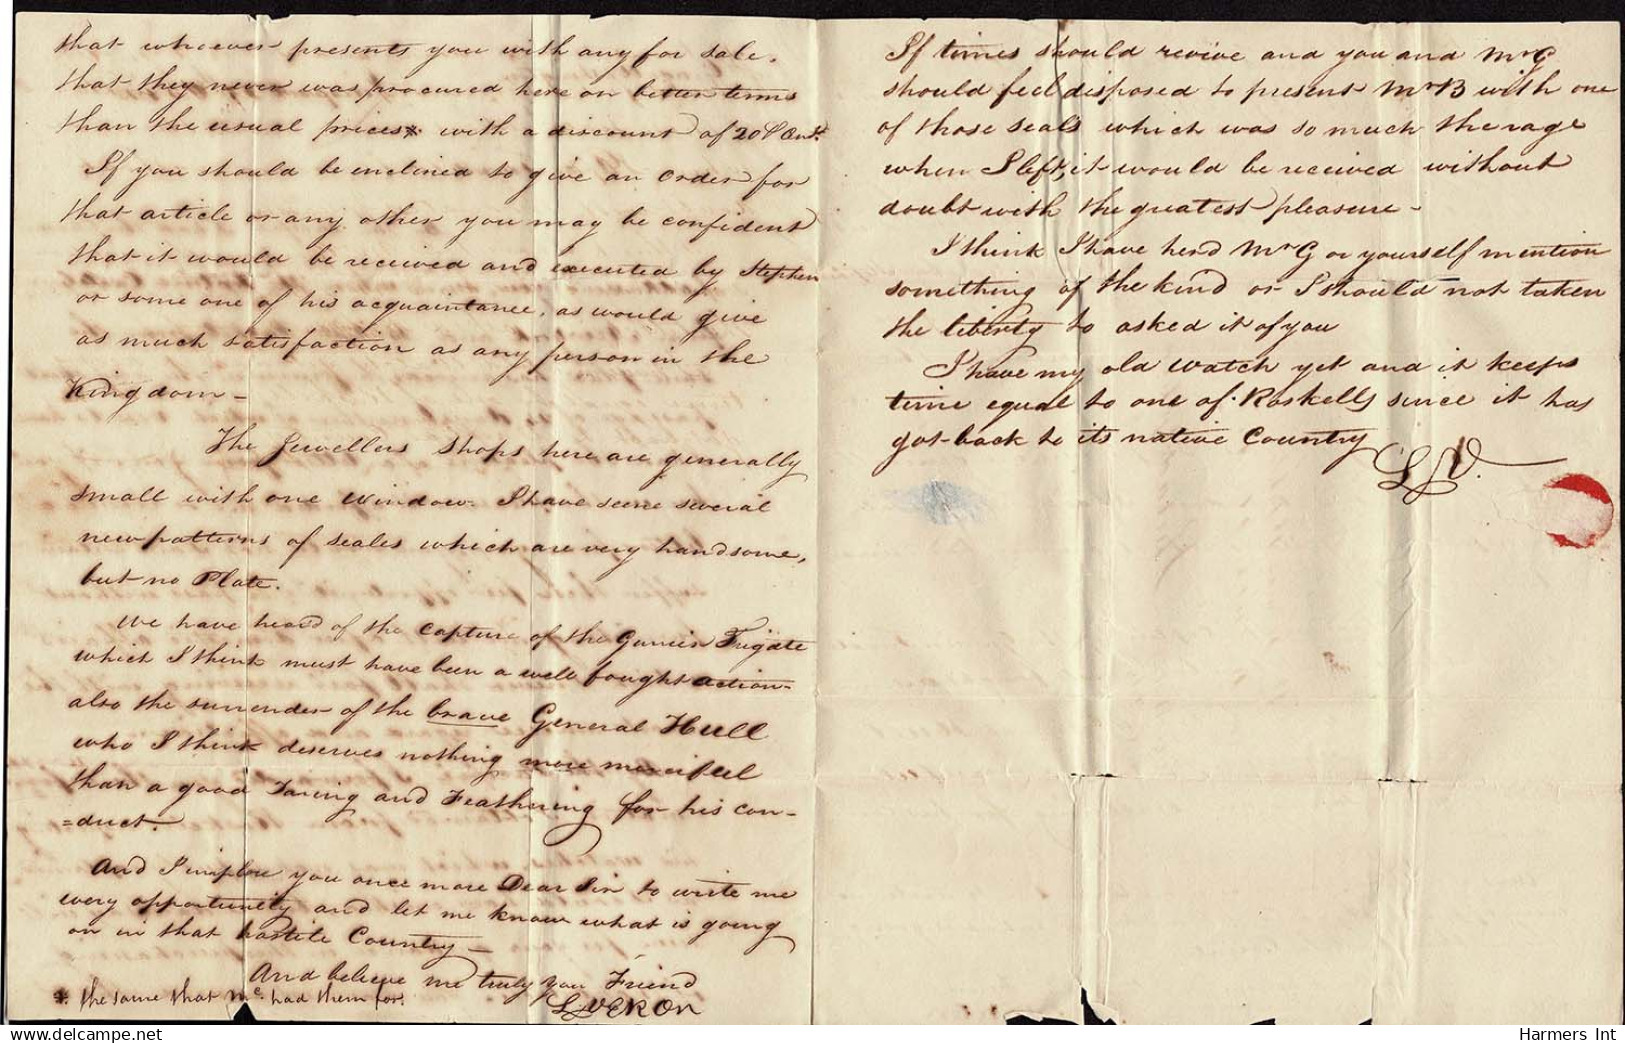 that whoever presents you with any for sale.
that they never was procured here on better terms
than the usual prices* with a discount of 20 P Cent.
If you should be inclined to give an order for
that article or any other you may be confident
that it would be received and executed by Stephen
or some one of his acquaintance, as would give
as much satisfaction as any person in the
Kingdom –
The Jewellers shops here are generally
small with one window. I have seene several
new patterns of seales which are very handsome,
but no Plate.
We have heard of the Capture of the Frigate
which I think must have been a well fought action –
also the surrender of the brave General Hull
who I think deserves nothing more merciful
than a good Taring and Feathering for his con-
=duct.
And I implore you once more Dear Sir to write me
every opportunity and let me know what is going
on in that hostile Country –
And believe me truly you Friend
L VERON
*. the same that Mc. had them for.
If times should revive and you and Mr G
should feel disposed to present Mr B with one
of those seals which was so much the rage
when I left, it would be received without
doubt with the greatest pleasure –
I think I have herd Mr G or yourself mention
something of the kind or I should not taken
the liberty to asked it of you
I have my old watch yet and it keeps
time equal to one of Roskells since it has
got back to its native Country
L V.
Harmers Int